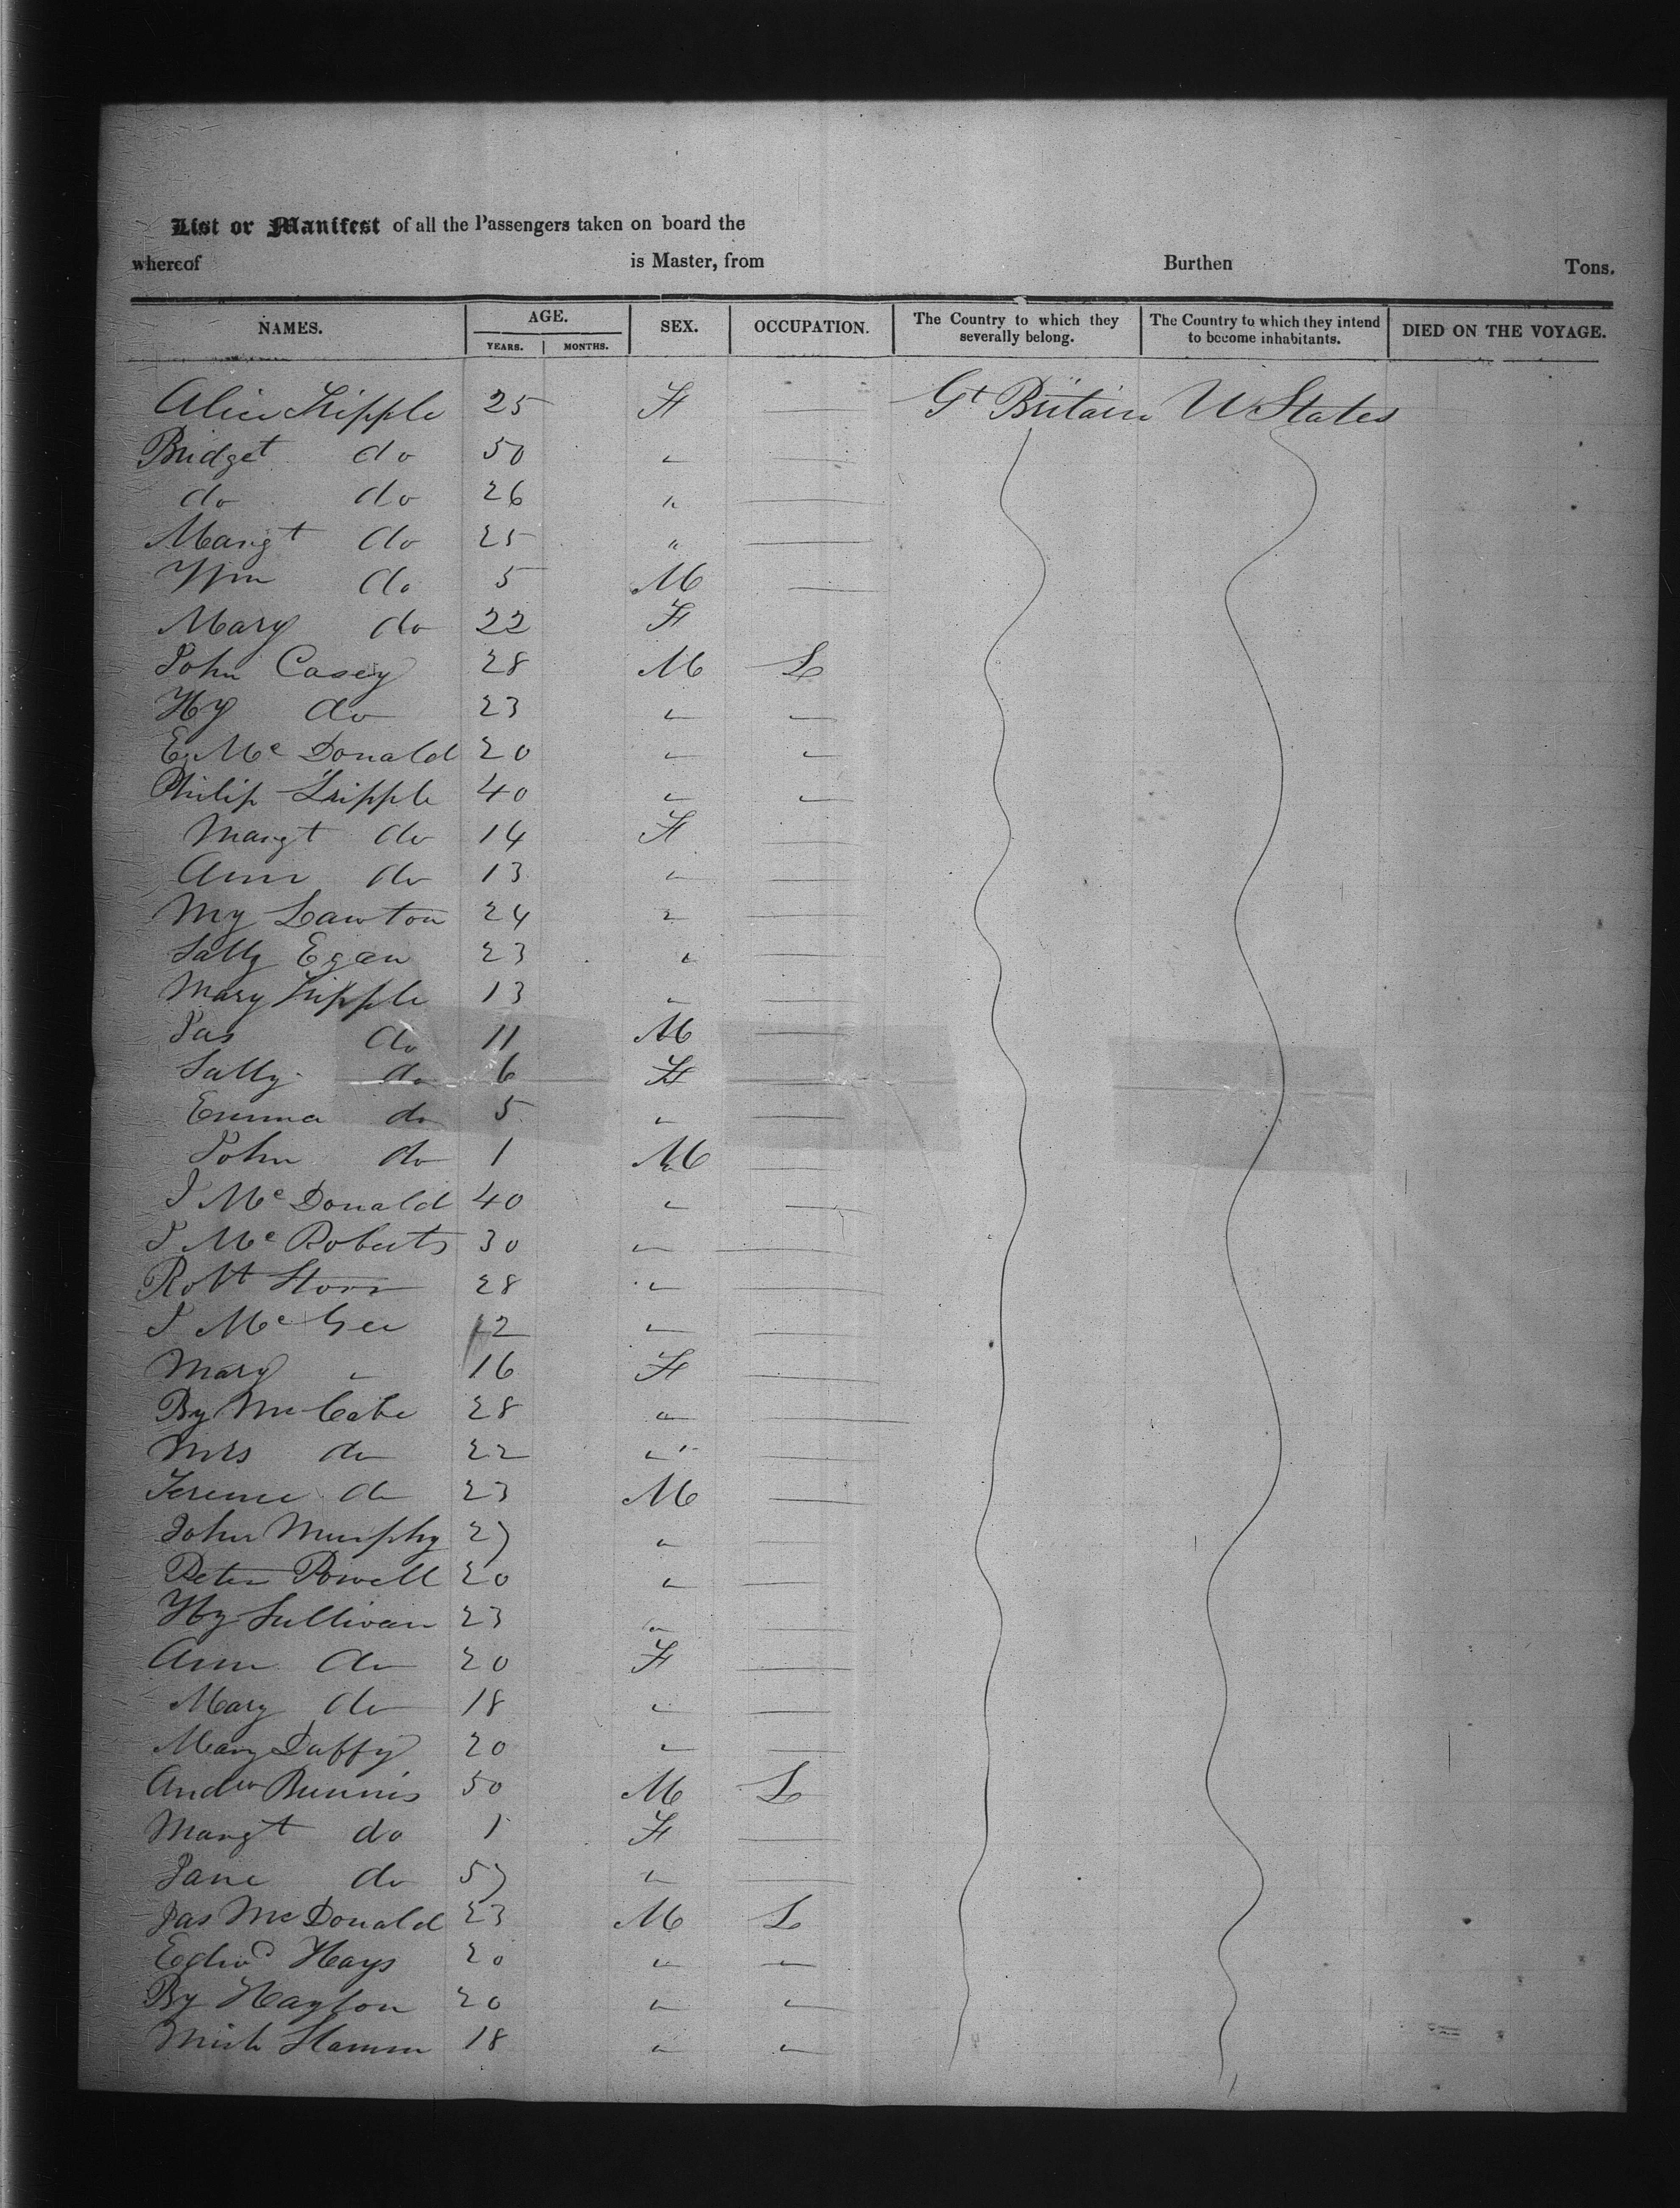 List or Manifest of all the Passengers taken on board the
whereof is Master, from Burthen Tons.
NAMES. AGE. YEARS. MONTHS. SEX. OCCUPATION. The Country to which they severally belong. The Country to which they intend to become inhabitants. DIED ON THE VOYAGE.
Alice Tripple 25 F — Gt Britain U States
Bridget do 50 " —
do do 26 " —
Margt do 25 " —
Wm do 5 M —
Mary do 22 F
John Casey 28 M L
Hy do 23 " "
E McDonald 20 " "
Philip Tripple 40 " "
Margt do 14 F —
Ann do 13 " —
My Lawton 24 " —
Sally Egan 23 " —
Mary Tripple 13 " —
Jas do 11 M —
Sally do 6 F —
Emma do 5 " —
John do 1 M —
J McDonald 40 " —
J McRoberts 30 " —
Robt 28 " —
J McGee 12 " —
Mary " 16 F —
By McCabe 28 " —
Mrs do 22 " —
Terence do 23 M —
John Murphy 27 " —
Peter Powell 20 " —
Hy Sullivan 23 " —
Ann do 20 F —
Mary do 18 " —
Mary Duffy 20 " —
Andw 50 M L
Margt do 1 F —
Jane do 57 " —
Jas McDonald 23 M L
Edwd Hays 20 " "
By 20 " "
Mich 18 " "